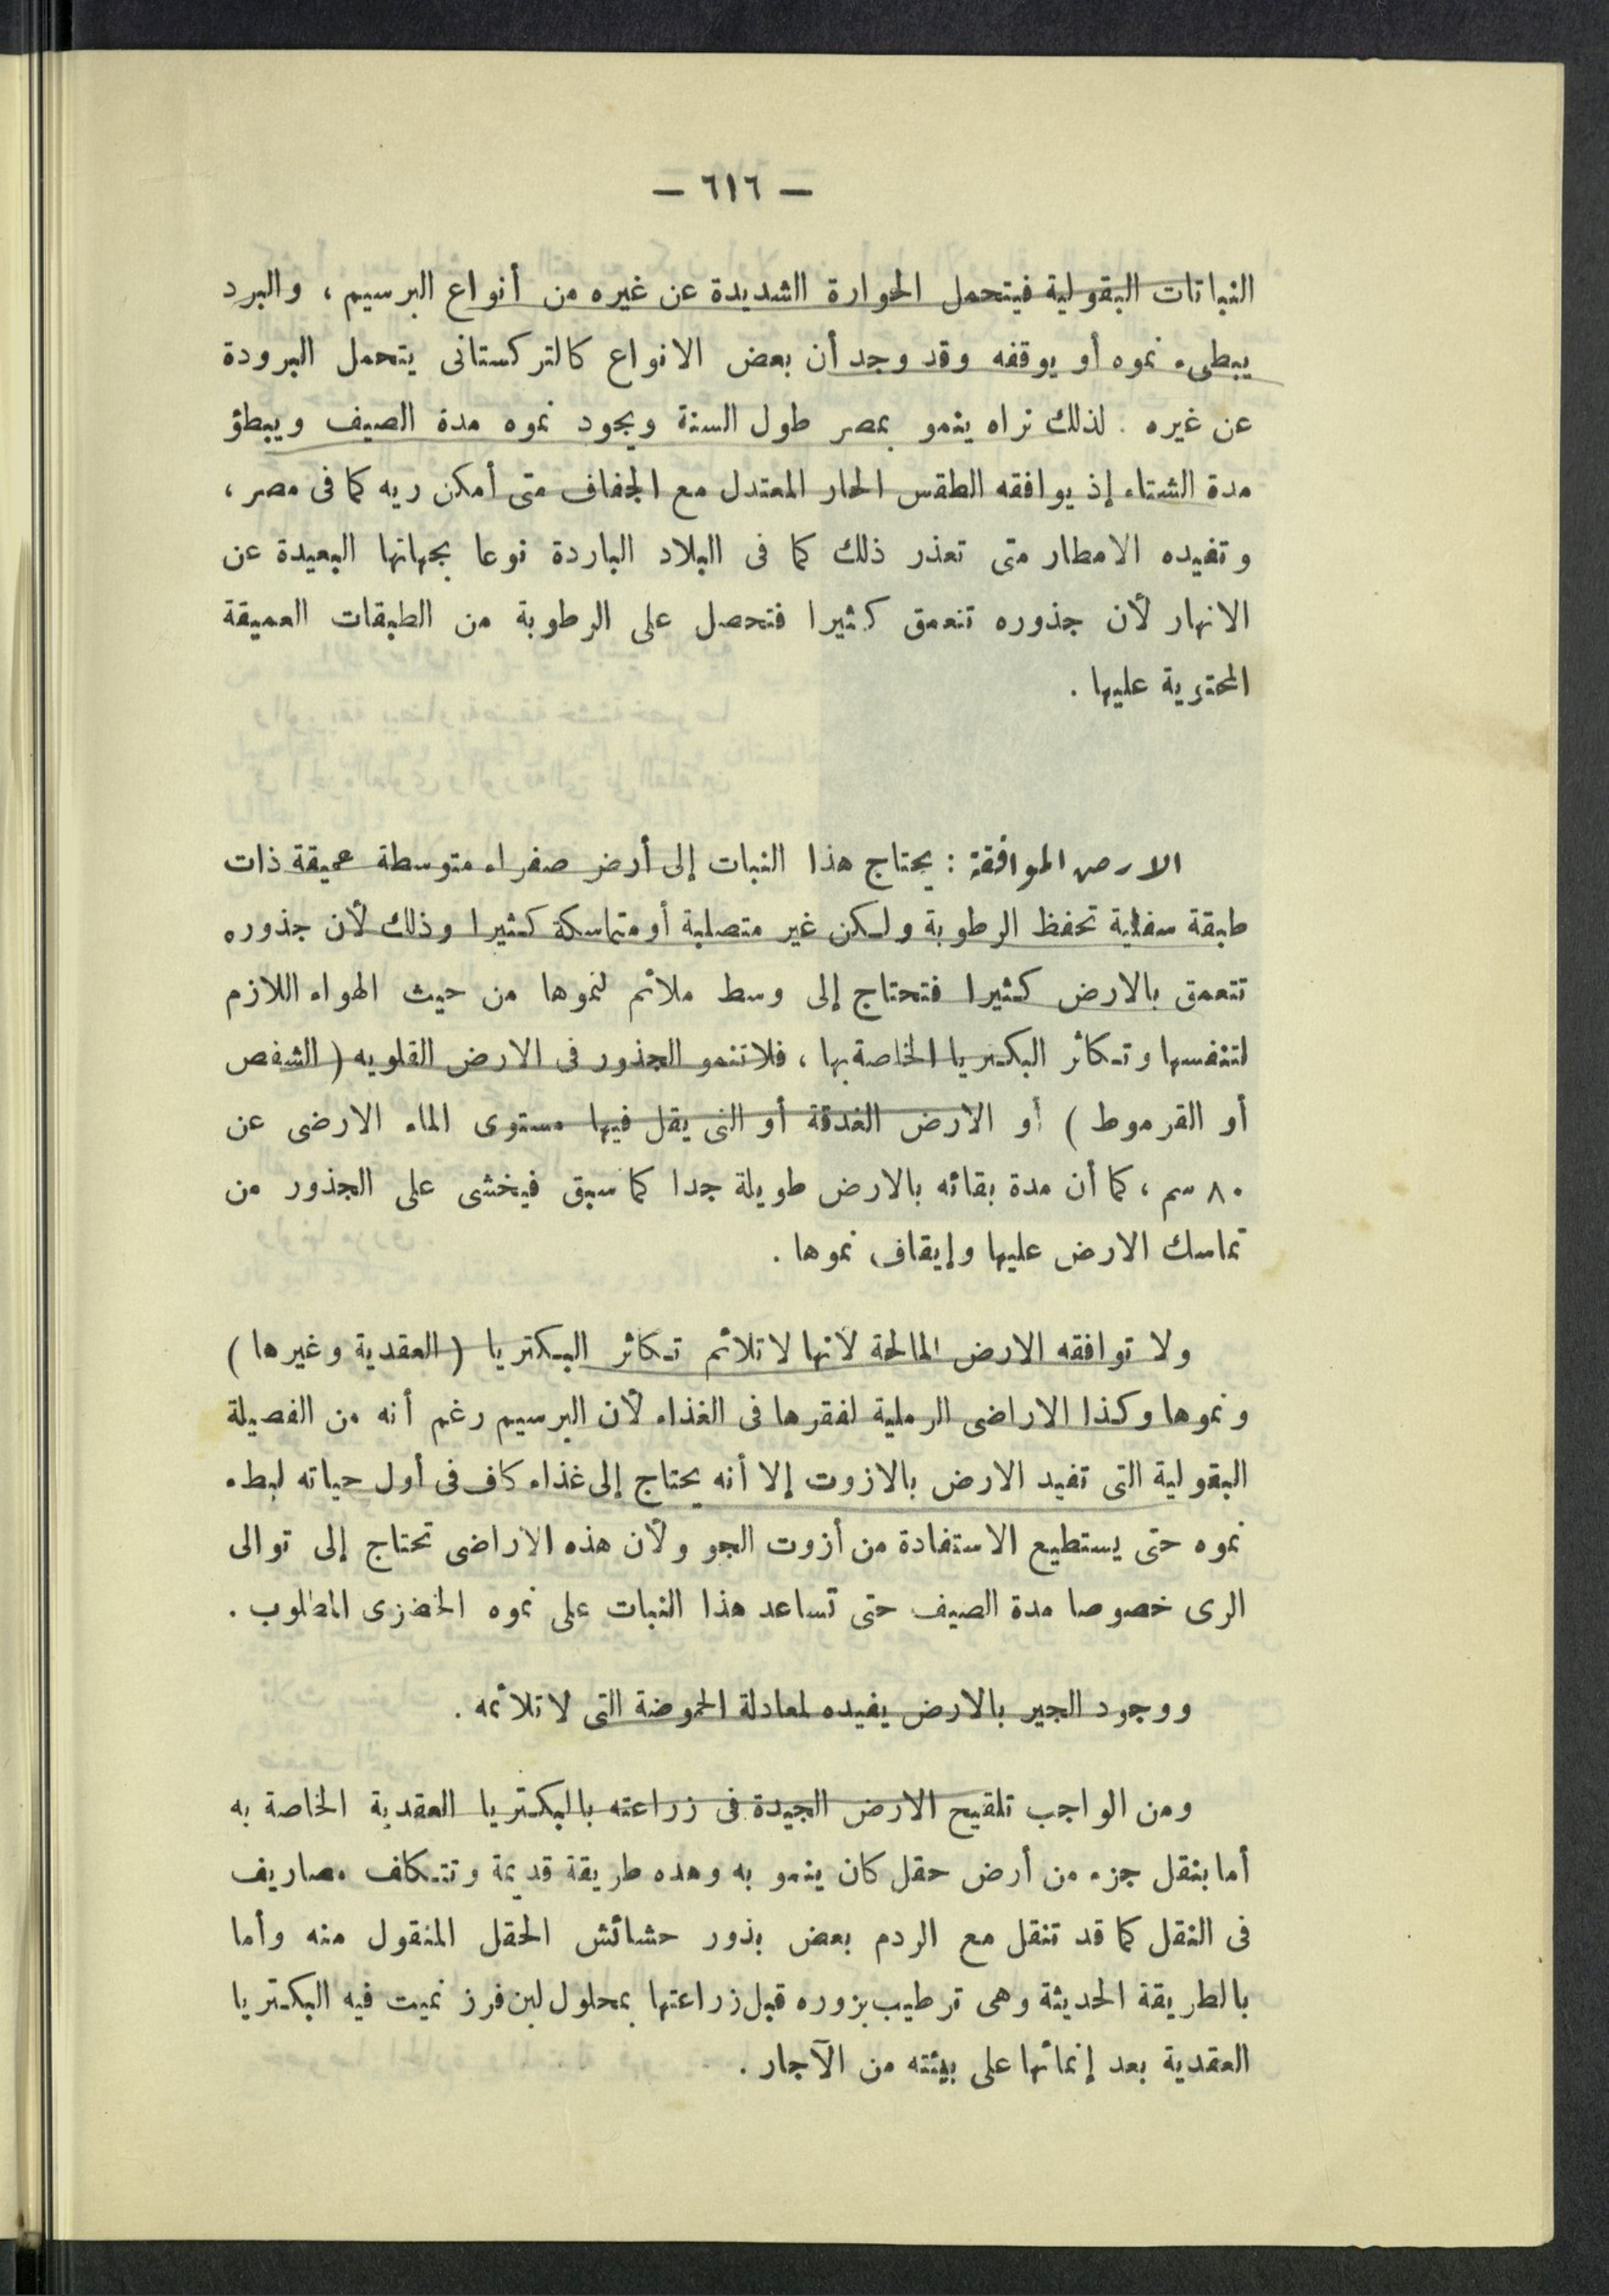 — ٦١٦ —
النباتات البقولية فيتحمل الحرارة الشديدة عن غيره من أنواع البرسيم ، والبرد
يبطىء نموه أو يوقفه وقد وجد أن بعض الانواع كالتركستانى يتحمل البرودة
عن غيره . لذلك نراه ينمو بمصر طول السنة ويجود نموه مدة الصيف ويبطؤ
مدة الشتاء إذ يوافقه الطقس الحار المعتدل مع الجفاف متى أمكن ريه كما فى مصر ،
وتفيده الامطار متى تعذر ذلك كما فى البلاد الباردة نوعا بجهاتها البعيدة عن
الانهار لأن جذوره تتعمق كثيرا فتحصل على الرطوبة من الطبقات العميقة
المحتوية عليها .
الارض الموافقة : يحتاج هذا النبات إلى أرض صفراء متوسطة عميقة ذات
طبقة سفلية تحفظ الرطوبة ولكن غير متصلبة أو متماسكة كثيرا وذلك لأن جذوره
تتعمق بالارض كثيرا فتحتاج إلى وسط ملائم لنموها من حيث الهواء اللازم
لتنفسها وتكاثر البكتريا الخاصة بها ، فلا تنمو الجذور فى الارض القلويه ( الشفص
أو القرموط ) أو الارض الغدقة أو التى يقل فيها مستوى الماء الارضى عن
٨٠ سم ، كما أن مدة بقائه بالارض طويلة جدا كما سبق فيخشى على الجذور من
تماسك الارض عليها وإيقاف نموها .
ولا توافقه الارض المالحة لأنها لا تلائم تكاثر البكتريا ( العقدية وغيرها )
ونموها وكذا الاراضى الرملية لفقرها فى الغذاء لأن البرسيم رغم أنه من الفصيلة
البقولية التى تفيد الارض بالازوت إلا أنه يحتاج إلى غذاء كاف فى أول حياته لبطء
نموه حتى يستطيع الاستفادة من أزوت الجو ولأن هذه الاراضى تحتاج إلى توالى
الرى خصوصا مدة الصيف حتى تساعد هذا النبات على نموه الخضرى المطلوب .
ووجود الجير بالارض يفيده لمعادلة الحموضة التى لا تلائمه .
ومن الواجب تلقيح الارض الجيدة فى زراعته بالبكتريا العقدية الخاصة به
أما بنقل جزء من أرض حقل كان ينمو به وهذه طريقة قديمة وتتكلف مصاريف
فى النقل كما قد تنقل مع الردم بعض بذور حشائش الحقل المنقول منه وأما
بالطريقة الحديثة وهى ترطيب بزوره قبل زراعتها بمحلول لبن فرز نميت فيه البكتريا
العقدية بعد إنمائها على بيئته من الآجار .